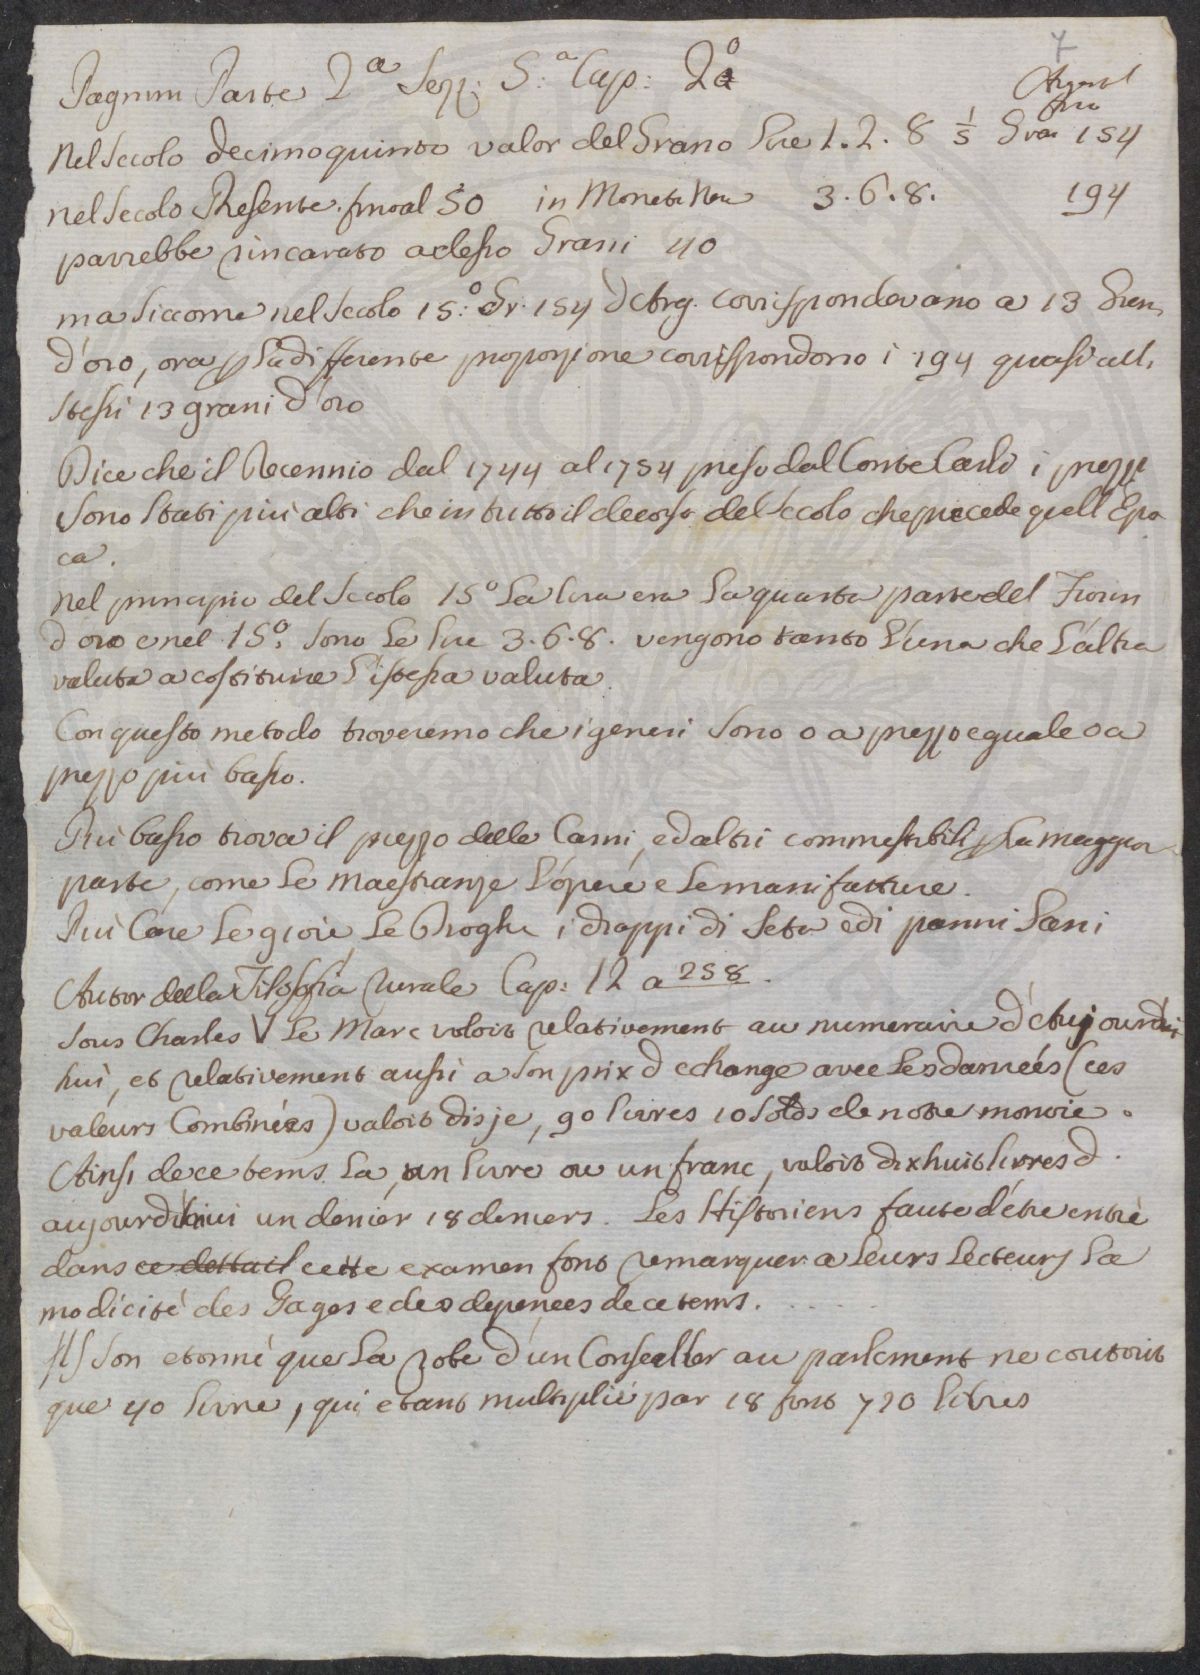 7
Pagnini Parte 2.a Sez: 5.a Cap: 2.o
Argent fino
Nel Secolo decimoquinto valor del Grano Lire 1. 2. 8 1/5 Grani 154
nel Secolo Presente fino al 50 in Moneta Nera 3. 6. 8. 194
parrebbe rincarato adesso Grani 40
ma Siccome nel Secolo 15:o Gr: 154 d'Arg. corrispondevano a 13 Gran,
d'oro, ora p La differente proporzione corrispondono i 194 quasi alli
Stessi 13 grani d'oro
Dice che il Decennio dal 1744 al 1754 preso dal Conte Carli i prezzi
Sono Stati più alti che in tutto il decorso del Secolo che precede quell'Epo
ca.
Nel principio del Secolo 15o La lira era La quarta parte del Fiorin
d'oro e nel 15o: Sono Le lire 3. 6. 8. vengono tanto l'una che l'altra
valuta a costituire l'istessa valuta.
Con questo metodo troveremo che i generi Sono o a prezzo eguale o a
prezzo più basso.
Più basso trova il prezzo delle Carni, ed altri commestibili p La maggior
parte, come Le maestranze l'opere e Le manifatture.
Più Care Le gioie Le Droghe i drappi di Seta e di panni Lani
Autor della Filosofia Rurale Cap: 12 a 258.
Sous Charles V Le Marc valoit relativement au numeraire d'aujourdui
hui, et relativement aussi a Son prix d echange avec Les darneés (ces
valeurs Combinées) valoit disje, 90 livres 10 Solds de notre monoie.
Ainsi de ce tems La, un livre ou un franc, valoit dixhuit livres d
aujourd'hui un denier 18 deniers. Les Historiens faute d'étre entré
dans ce dettail cette examen font remarquer a Leurs Lecteurs La
modicité des Gages e des depenees de ce tems. . . . . .
Ils Son etonné que La robe d'un Conseiller au parlement ne coutoit
que 40 livre, qui etant multiplié par 18 font 720 livres